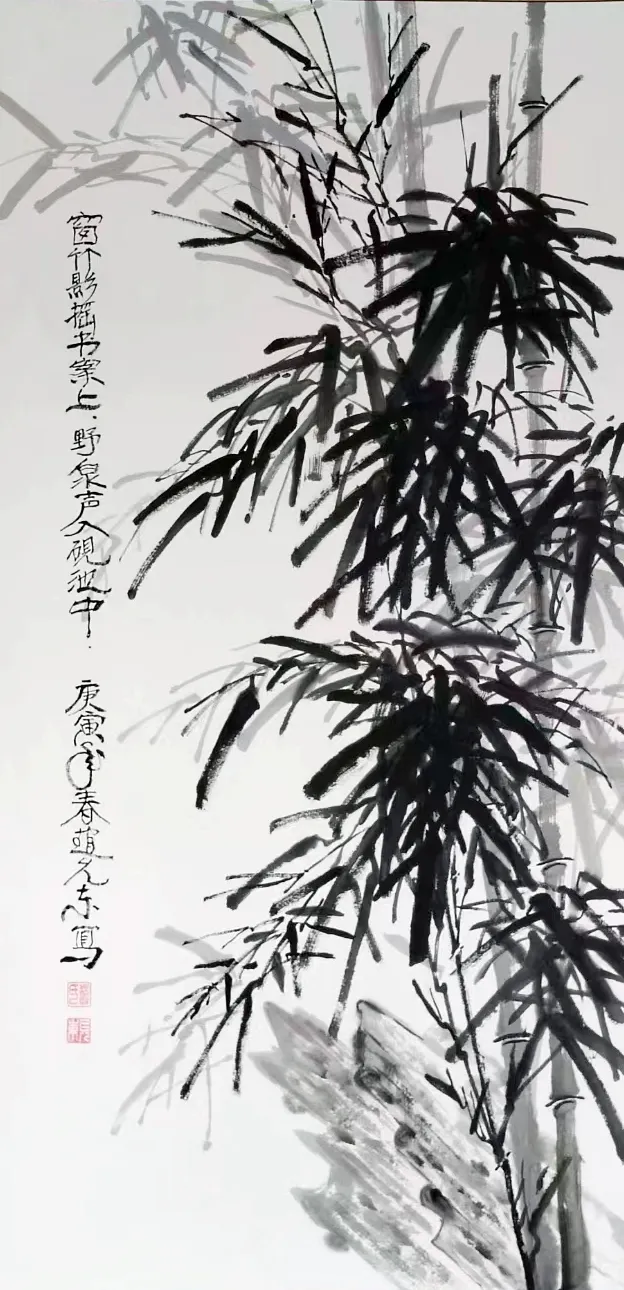 窗竹影摇书案上.野泉声入砚池中. 庚寅年春赵东写